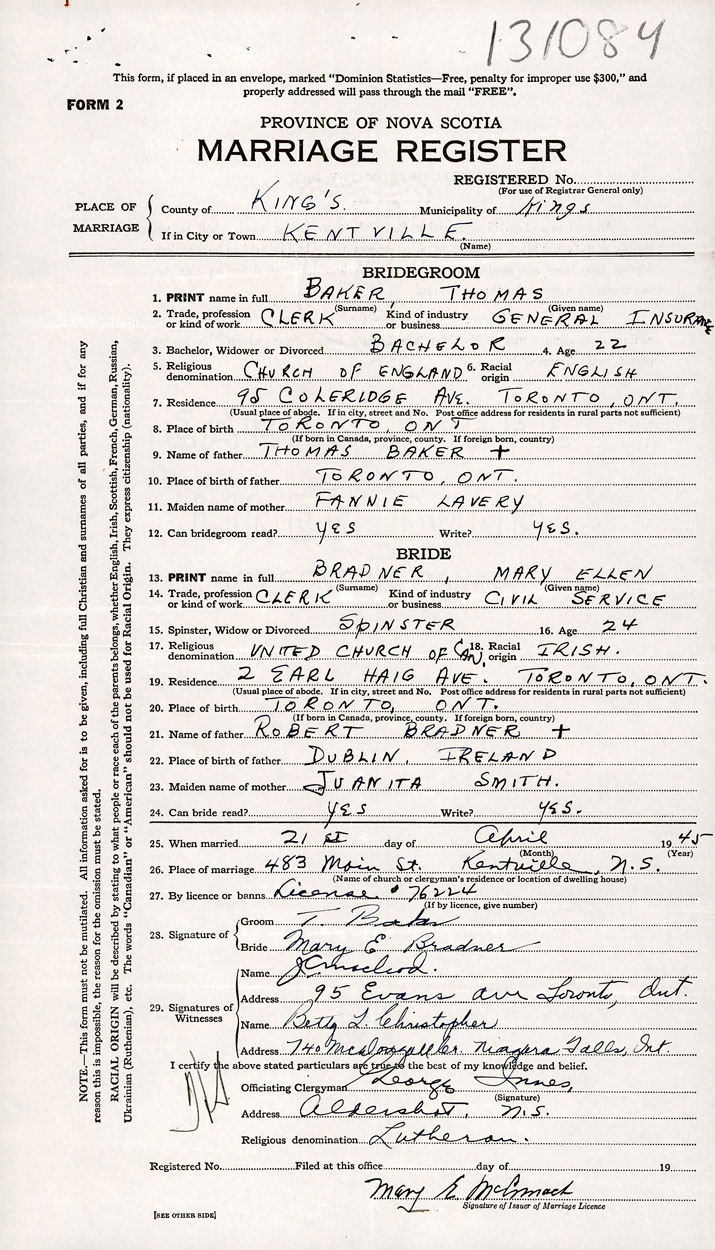 131084
This form, if placed in an envelope, marked "Dominion Statistics—Free, penalty for improper use $300," and
properly addressed will pass through the mail "FREE".
FORM 2
PROVINCE OF NOVA SCOTIA
MARRIAGE REGISTER
REGISTERED No.
(For use of Registrar General only)
PLACE OF MARRIAGE
County of KING'S. Municipality of Kings
If in City or Town KENTVILLE.
(Name)
BRIDEGROOM
1. PRINT name in full BAKER, THOMAS
(Surname) (Given name)
2. Trade, profession or kind of work CLERK Kind of industry or business GENERAL INSURANCE
3. Bachelor, Widower or Divorced BACHELOR 4. Age 22
5. Religious denomination CHURCH OF ENGLAND 6. Racial origin ENGLISH
7. Residence 95 COLERIDGE AVE. TORONTO, ONT.
(Usual place of abode. If in city, street and No. Post office address for residents in rural parts not sufficient)
8. Place of birth TORONTO, ONT
(If born in Canada, province, county. If foreign born, country)
9. Name of father THOMAS BAKER +
10. Place of birth of father TORONTO, ONT.
11. Maiden name of mother FANNIE LAVERY
12. Can bridegroom read? YES Write? YES.
BRIDE
13. PRINT name in full BRADNER, MARY ELLEN
(Surname) (Given name)
14. Trade, profession or kind of work CLERK Kind of industry or business CIVIL SERVICE
15. Spinster, Widow or Divorced SPINSTER 16. Age 24
17. Religious denomination UNITED CHURCH OF CAN. 18. Racial origin IRISH.
19. Residence 2 EARL HAIG AVE. TORONTO, ONT.
(Usual place of abode. If in city, street and No. Post office address for residents in rural parts not sufficient)
20. Place of birth TORONTO, ONT.
(If born in Canada, province, county. If foreign born, country)
21. Name of father ROBERT BRADNER +
22. Place of birth of father DUBLIN, IRELAND
23. Maiden name of mother JUANITA SMITH.
24. Can bride read? YES Write? YES.
25. When married 21 st day of April 1945
(Month) (Year)
26. Place of marriage 483 Main St. Kentville, N.S.
(Name of church or clergyman's residence or location of dwelling house)
27. By licence or banns License # 76224
(If by licence, give number)
28. Signature of
Groom T. Baker
Bride Mary E Bradner
29. Signatures of Witnesses
Name J C Macleod.
Address 95 Evans ave Toronto, Ont.
Name Betty L. Christopher
Address 740 Niagara Falls, Ont.
I certify the above stated particulars are true to the best of my knowledge and belief.
Officiating Clergyman George Innes,
(Signature)
Address Aldershot, N.S.
Religious denomination Lutheran.
Registered No. Filed at this office day of 19
Mary E McCormack
Signature of Issuer of Marriage Licence
[SEE OTHER SIDE]
NOTE.—This form must not be mutilated. All information asked for is to be given, including full Christian and surnames of all parties, and if for any
reason this is impossible, the reason for the omission must be stated.
RACIAL ORIGIN will be described by stating to what people or race each of the parents belongs, whether English, Irish, Scottish, French, German, Russian,
Ukrainian (Ruthenian), etc. The words "Canadian" or "American" should not be used for Racial Origin. They express citizenship (nationality).